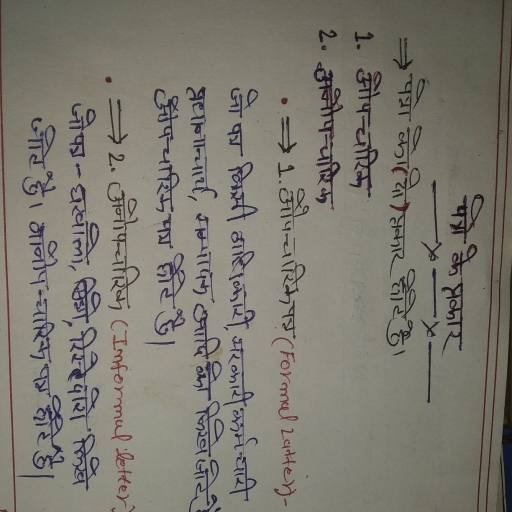 पत्र के प्रकार
⇒ पत्र के (दो) प्रकार होते हैं।
1. औपचारिक
2. अनौपचारिक
• ⇒ 1. औपचारिक पत्र (Formal Latter)-
जो पत्र किसी अधिकारी, सरकारी कर्मचारी
प्रधानाचार्य, सम्पादक आदि को लिखे जाते हैं
औपचारिक पत्र होते हैं।
• ⇒ 2. अनौपचारिक (Informul letter)
जो पत्र - घरवालो, मित्रो, रिश्तेदारो लिखे
जाते हैं। अनौपचारिक पत्र होते हैं।